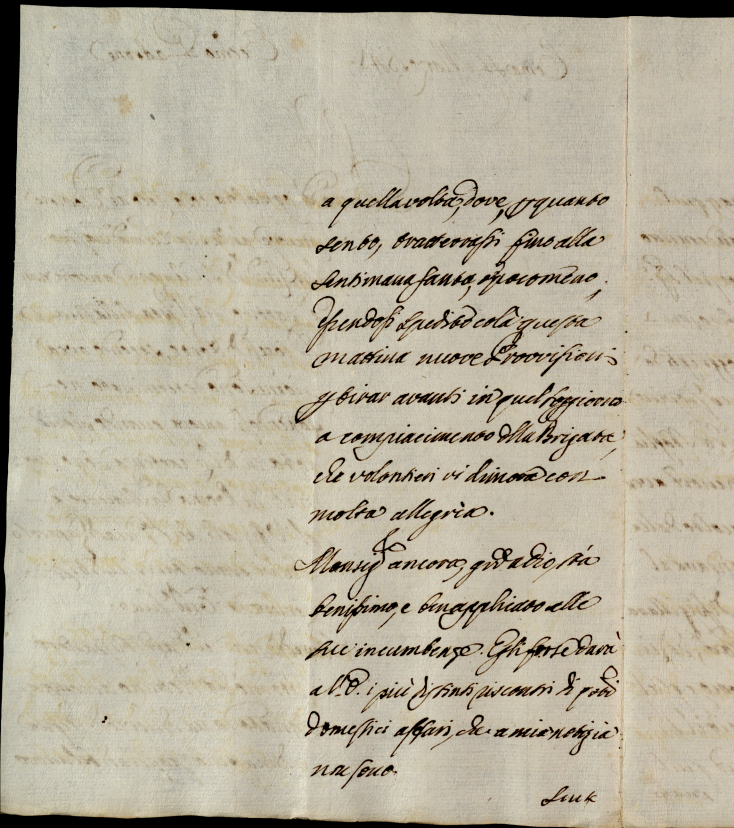 a quella volta, dove, p quanto
sento, tratterassi fino alla
Settimana santa, o poco meno,
essendosi spedito colà questa
mattina nuove Provvisioni
p tirar avanti in quel soggiorno
a compiacimento della Brigata,
che volontieri vi dimora con
molta allegria.
Monsigr ancora, gra a Dio, stà
benissimo, e ben applicato alle
sue incumbenze. Egli forse darà
a V.E. i più distinti riscontri di
domestici affari, che a mia notizia
non sono.